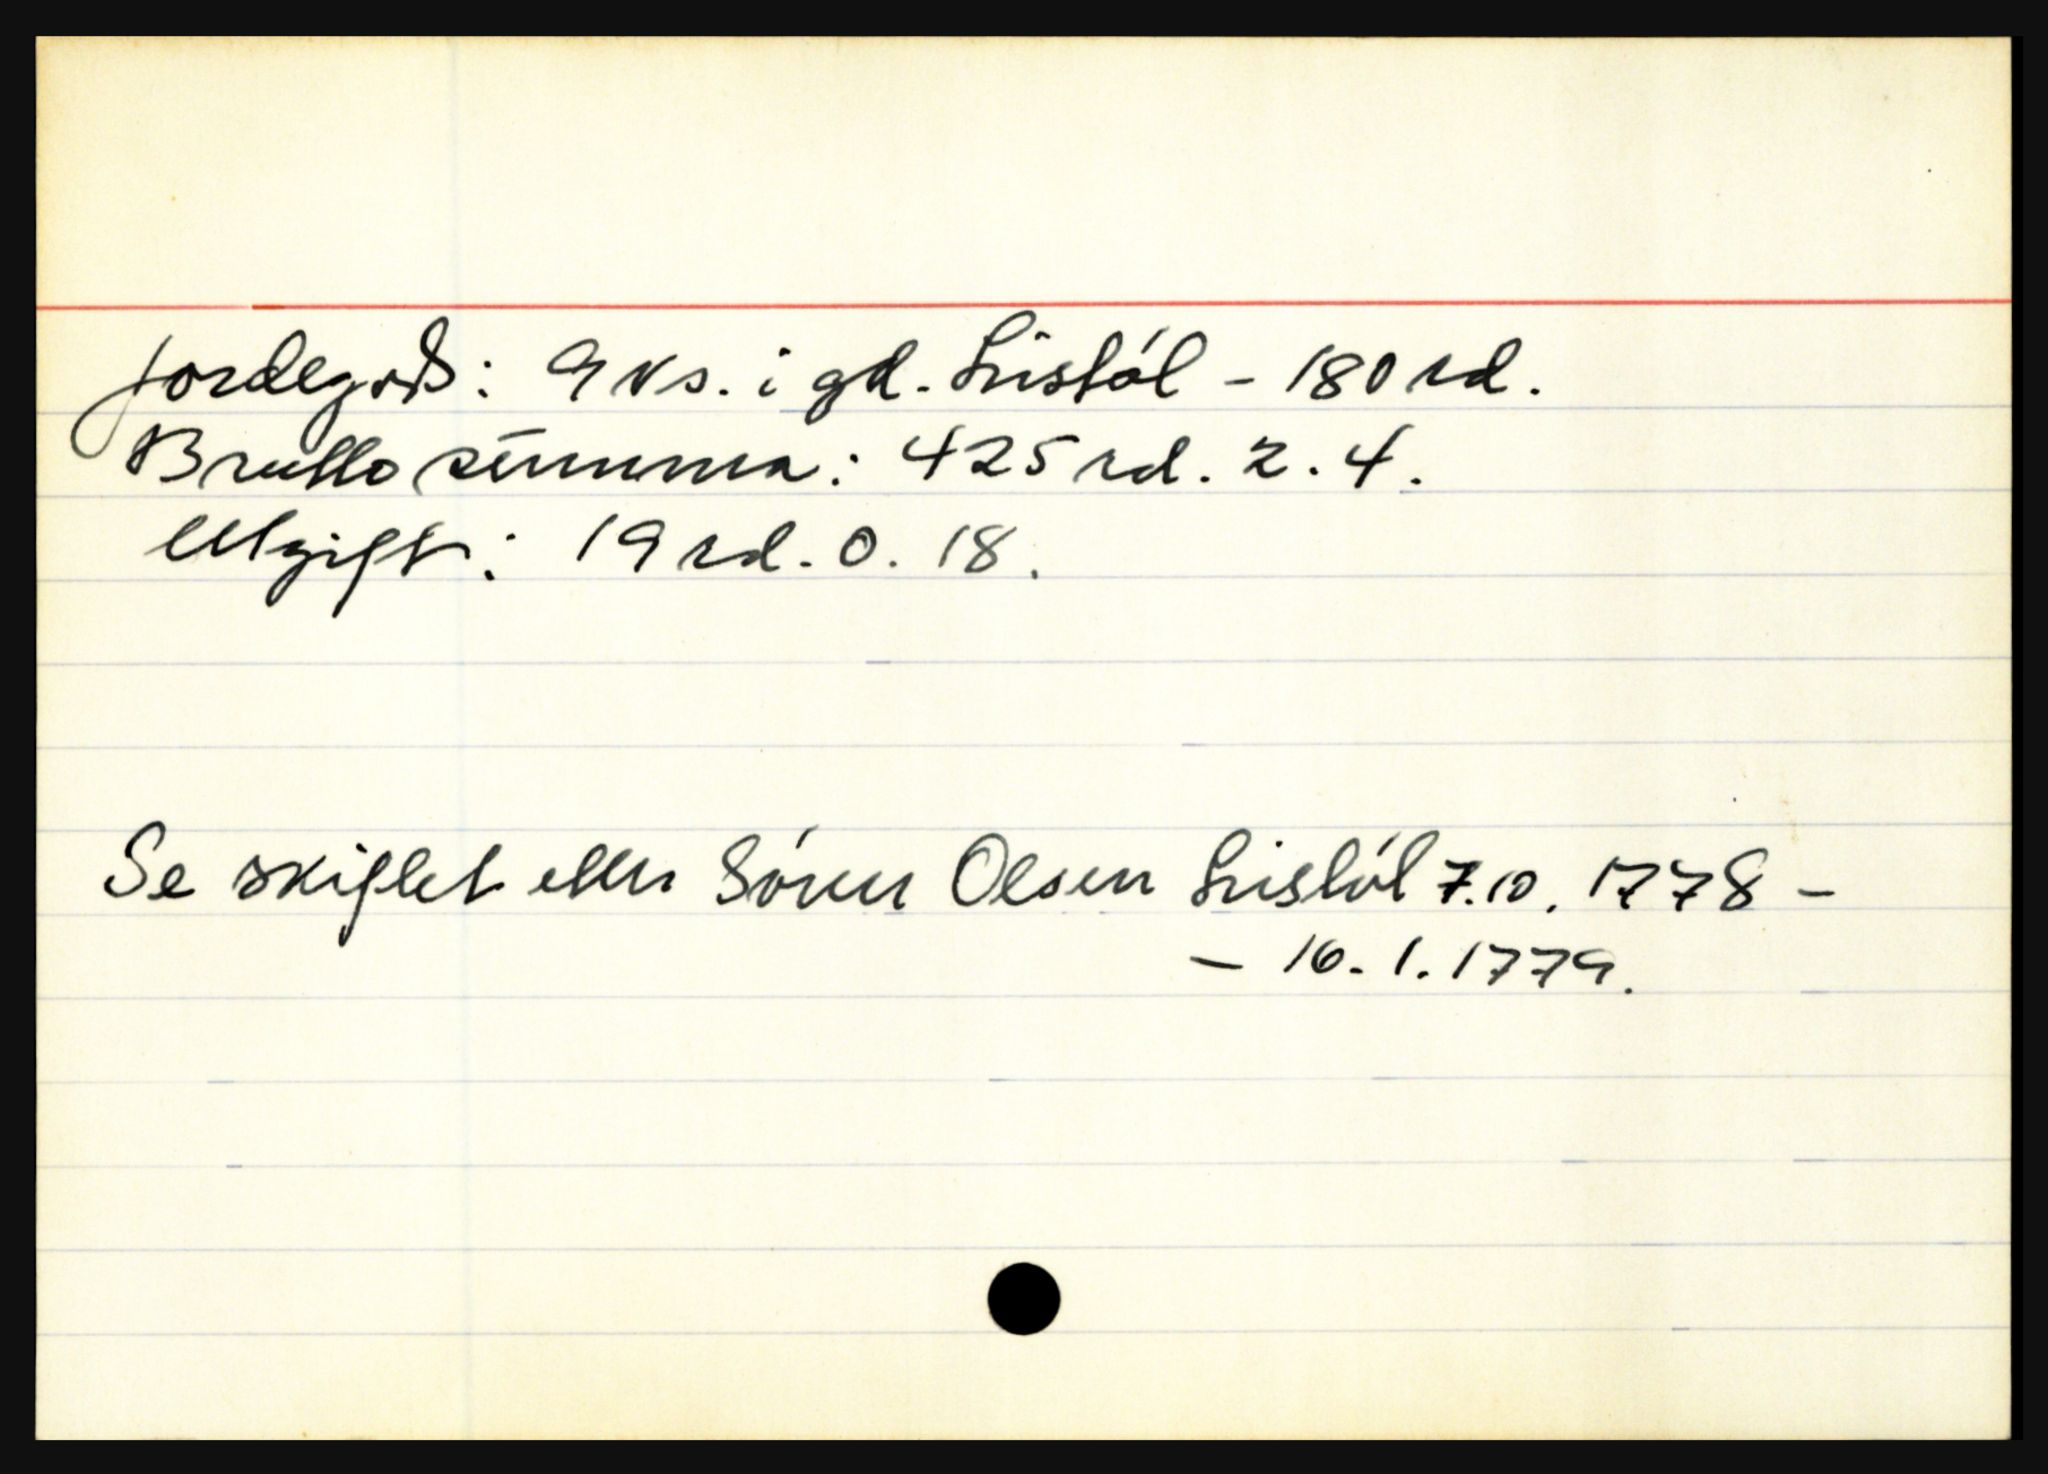 Jordegods: 9 ks. i gd. Listøl - 180 rd.
Brutto summa: 425 rd. 2. 4.
Utgift: 19 rd. 0. 18.
Se skiftet etter Søren Olsen Listøl 7.10. 1778 -
- 16. 1. 1779.